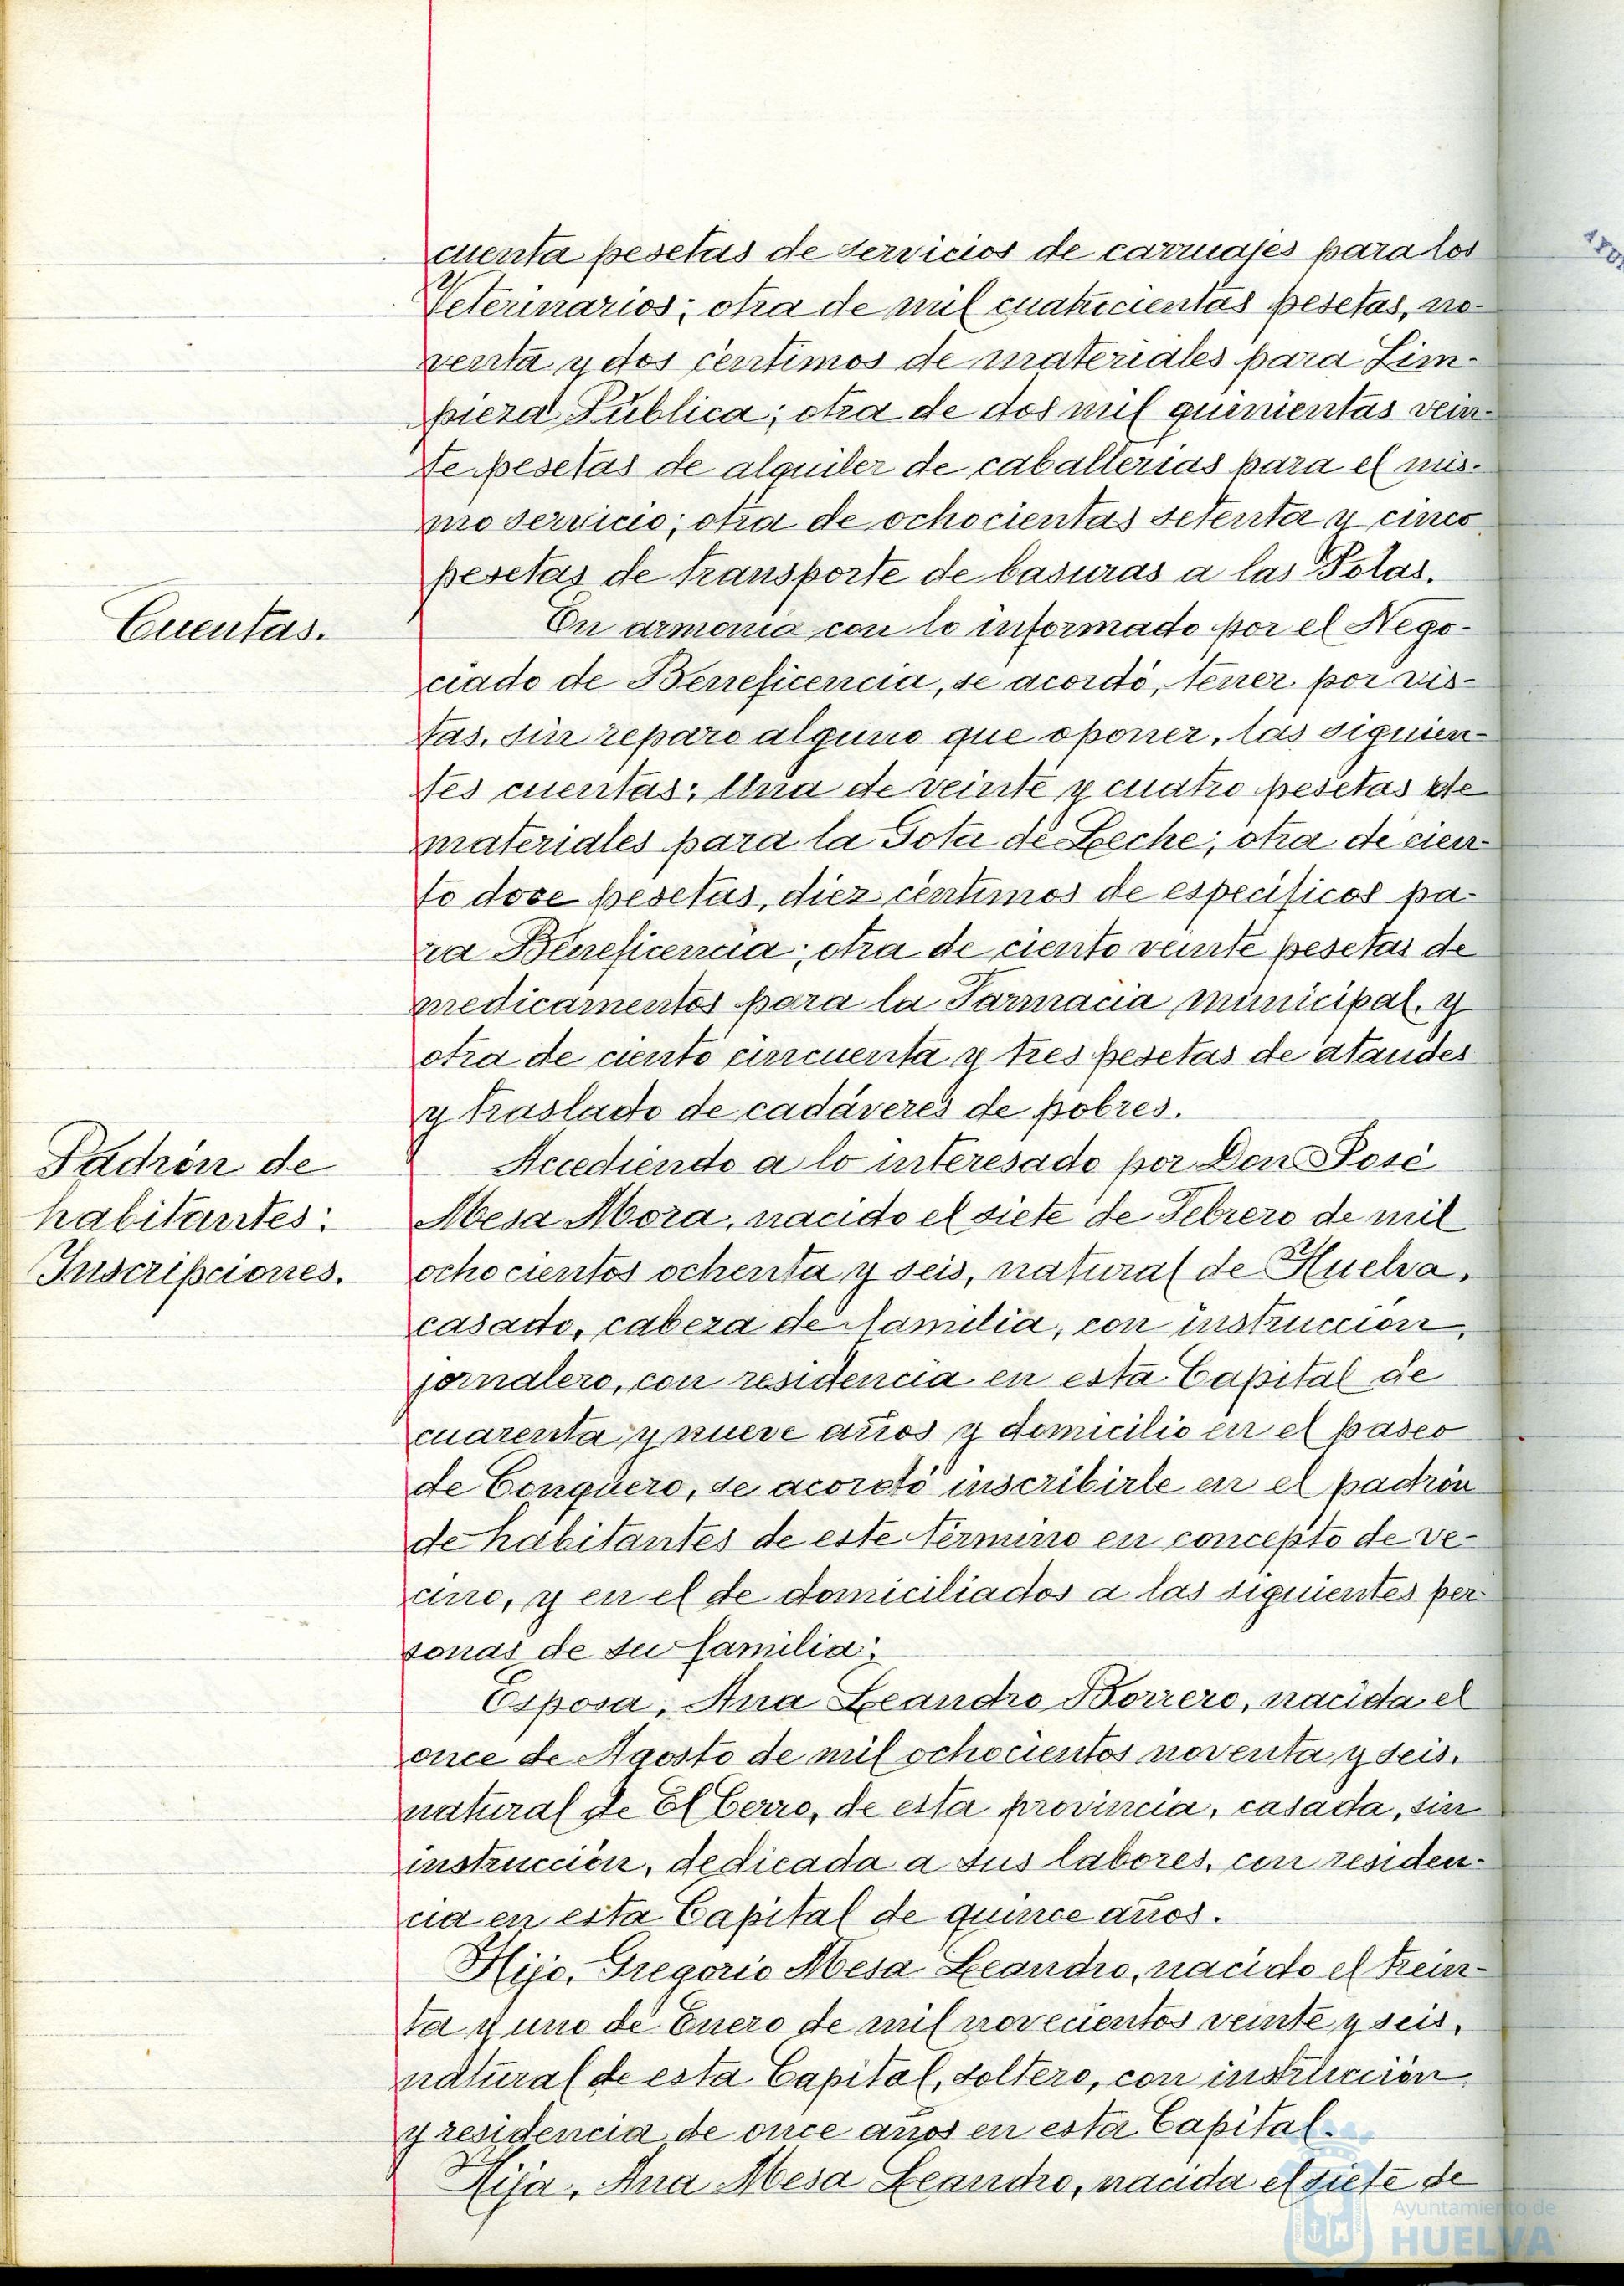 cuenta pesetas de servicios de carruajes para los
Veterinarios; otra de mil cuatrocientas pesetas, no-
venta y dos céntimos de materiales para Lim-
pieza Pública; otra de dos mil quinientas vein-
te pesetas de alquiler de caballerias para el mis-
mo servicio; otra de ochocientas setenta y cinco
pesetas de transporte de basuras a las Polas.
Cuentas.
En armonia con lo informado por el Nego-
ciado de Beneficencia, se acordó, tener por vis-
tas, sin reparo alguno que oponer, las siguien-
tes cuentas: Una de veinte y cuatro pesetas de
materiales para la Gota de Leche; otra de cien-
to doce pesetas, diez céntimos de especificos pa-
ra Beneficencia; otra de ciento veinte pesetas de
medicamentos para la Farmacia municipal, y
otra de ciento cincuenta y tres pesetas de ataudes
y traslado de cadáveres de pobres.
Padrón de
habitantes:
Inscripciones.
Accediendo a lo interesado por Don José
Mesa Mora, nacido el siete de Febrero de mil
ochocientos ochenta y seis, natural de Huelva,
casado, cabeza de familia, con instrucción,
jornalero, con residencia en esta Capital de
cuarenta y nueve años y domicilio en el paseo
de Conquero, se acordó inscribirle en el padrón
de habitantes de este término en concepto de ve-
cino, y en el de domiciliados a las siguientes per-
sonas de su familia:
Esposa, Ana Leandro Borrero, nacida el
once de Agosto de mil ochocientos noventa y seis,
natural de El Cerro, de esta provincia, casada, sin
instrucción, dedicada a sus labores, con residen-
cia en esta Capital de quince años.
Hijo, Gregorio Mesa Leandro, nacido el trein-
ta y uno de Enero de mil novecientos veinte y seis,
natural de esta Capital, soltero, con instrucción
y residencia de once años en esta Capital.
Hija, Ana Mesa Leandro, nacida el siete de
Ayuntamiento de
HUELVA